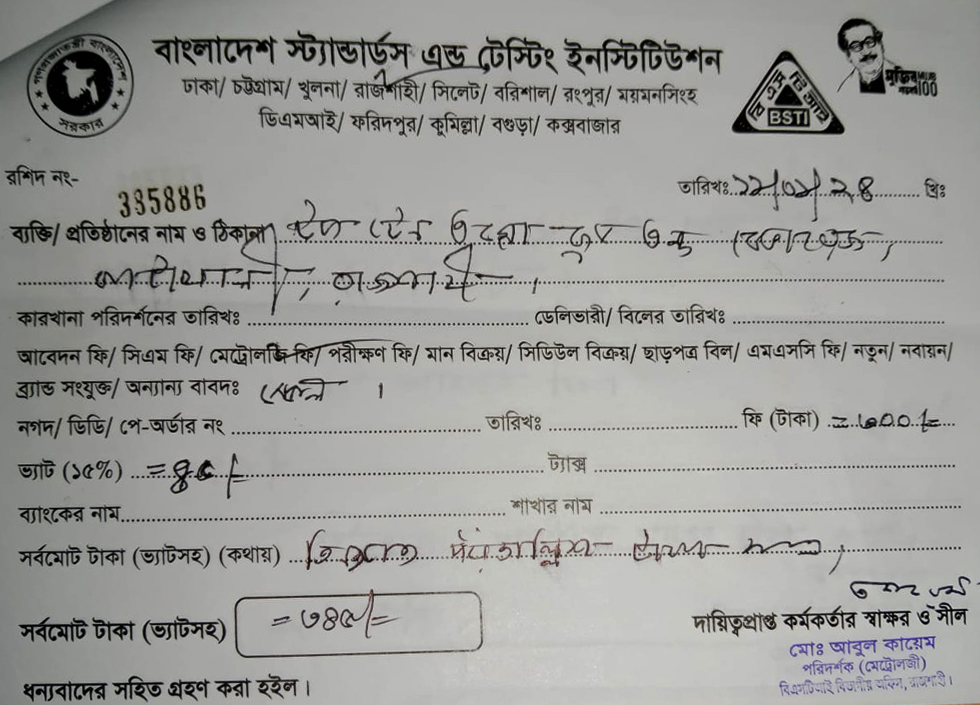 গণপ্রজাতন্ত্রী বাংলাদেশ
সরকার
বাংলাদেশ স্ট্যান্ডার্ডস এন্ড টেস্টিং ইনস্টিটিউশন
ঢাকা/ চট্টগ্রাম/ খুলনা/ রাজশাহী/ সিলেট/ বরিশাল/ রংপুর/ ময়মনসিংহ
ডিএমআই/ ফরিদপুর/ কুমিল্লা/ বগুড়া/ কক্সবাজার
বি এস টি আই
BSTI
মুজিব
100
রশিদ নং-
335886
তারিখঃ ২৪ খ্রিঃ
ব্যক্তি/ প্রতিষ্ঠানের নাম ও ঠিকানা
কারখানা পরিদর্শনের তারিখঃ ডেলিভারী/ বিলের তারিখঃ
আবেদন ফি/ সিএম ফি/ মেট্রোলজি ফি/ পরীক্ষণ ফি/ মান বিক্রয়/ সিডিউল বিক্রয়/ ছাড়পত্র বিল/ এমএসসি ফি/ নতুন/ নবায়ন/
ব্র্যান্ড সংযুক্ত/ অন্যান্য বাবদঃ
নগদ/ ডিডি/ পে-অর্ডার নং তারিখঃ ফি (টাকা) = ৩০০/=
ভ্যাট (১৫%) = ৪৫/= ট্যাক্স
ব্যাংকের নাম শাখার নাম
সর্বমোট টাকা (ভ্যাটসহ) (কথায়) তিনশত পঁয়তাল্লিশ টাকা মাত্র
সর্বমোট টাকা (ভ্যাটসহ) = ৩৪৫/=
দায়িত্বপ্রাপ্ত কর্মকর্তার স্বাক্ষর ও সীল
মোঃ আবুল কায়েম
পরিদর্শক (মেট্রোলজী)
বিএসটিআই বিভাগীয় অফিস, রাজশাহী।
ধন্যবাদের সহিত গ্রহণ করা হইল।